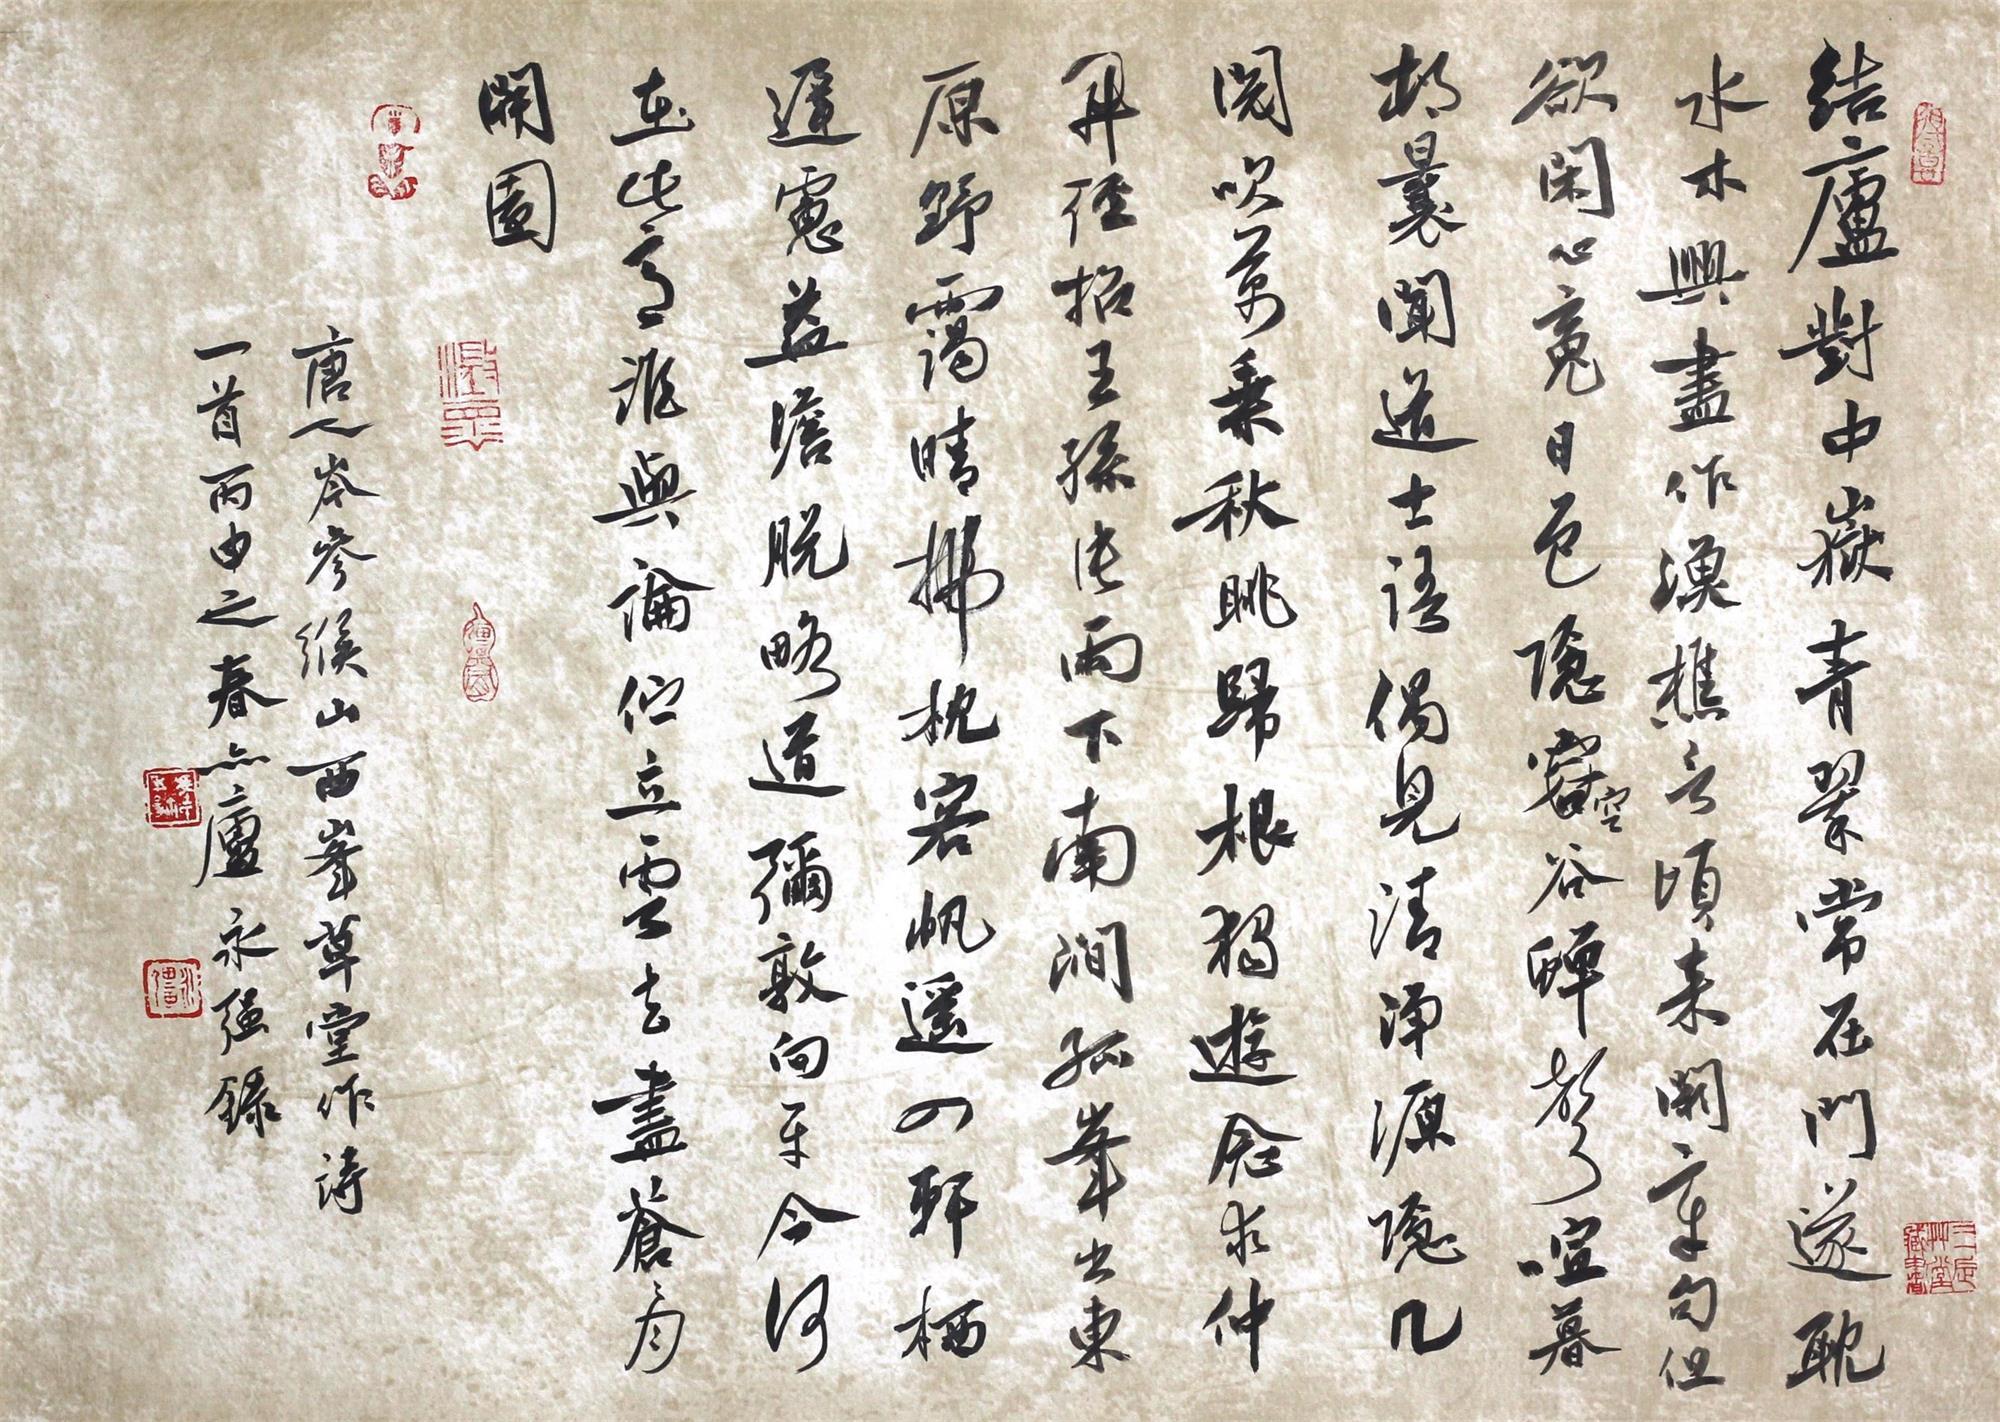 結廬對中嶽青翠常在門遂耽
水木興盡作漁樵言頃来闕章句但
欲閑心魂日色隱空谷蟬聲喧暮
村曩聞道士語偶見清淨源隱几
閱吹萬乘秋眺歸根獨遊念求仲
開徑招王孫片雨下南澗孤峯出東
原野靄晴拂枕客帆遥入軒栖
遲慮益澹脱略道彌敦向平今何
在此意誰與論佇立雲去盡蒼々月
開園
唐人岑參緱山西峯草堂作詩
一首丙申之春亦廬永强録